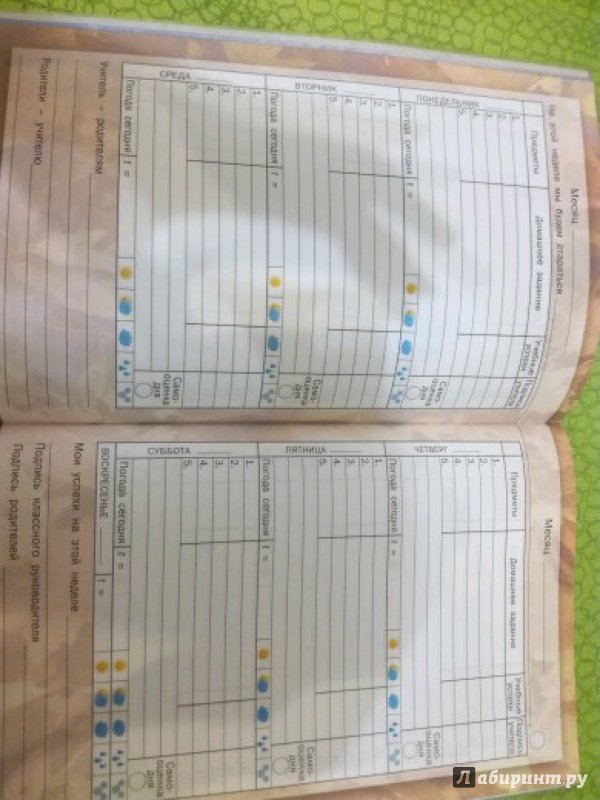 Месяц
На этой неделе мы будем стараться
Предметы Домашнее задание Учебные успехи Подпись учителя
ПОНЕДЕЛЬНИК
1.
2.
3.
4.
5.
Само-
оценка
дня
Погода сегодня t =
ВТОРНИК
1.
2.
3.
4.
5.
Само-
оценка
дня
Погода сегодня t =
СРЕДА
1.
2.
3.
4.
5.
Само-
оценка
дня
Погода сегодня t =
Учитель – родителям
Родители – учителю
Месяц
Предметы Домашнее задание Учебные успехи Подпись учителя
ЧЕТВЕРГ
1.
2.
3.
4.
5.
Само-
оценка
дня
Погода сегодня t =
ПЯТНИЦА
1.
2.
3.
4.
5.
Само-
оценка
дня
Погода сегодня t =
СУББОТА
1.
2.
3.
4.
5.
Само-
оценка
дня
Погода сегодня t =
ВОСКРЕСЕНЬЕ t =
Мои успехи на этой неделе
Подпись классного руководителя
Подпись родителей
Лабиринт.ру